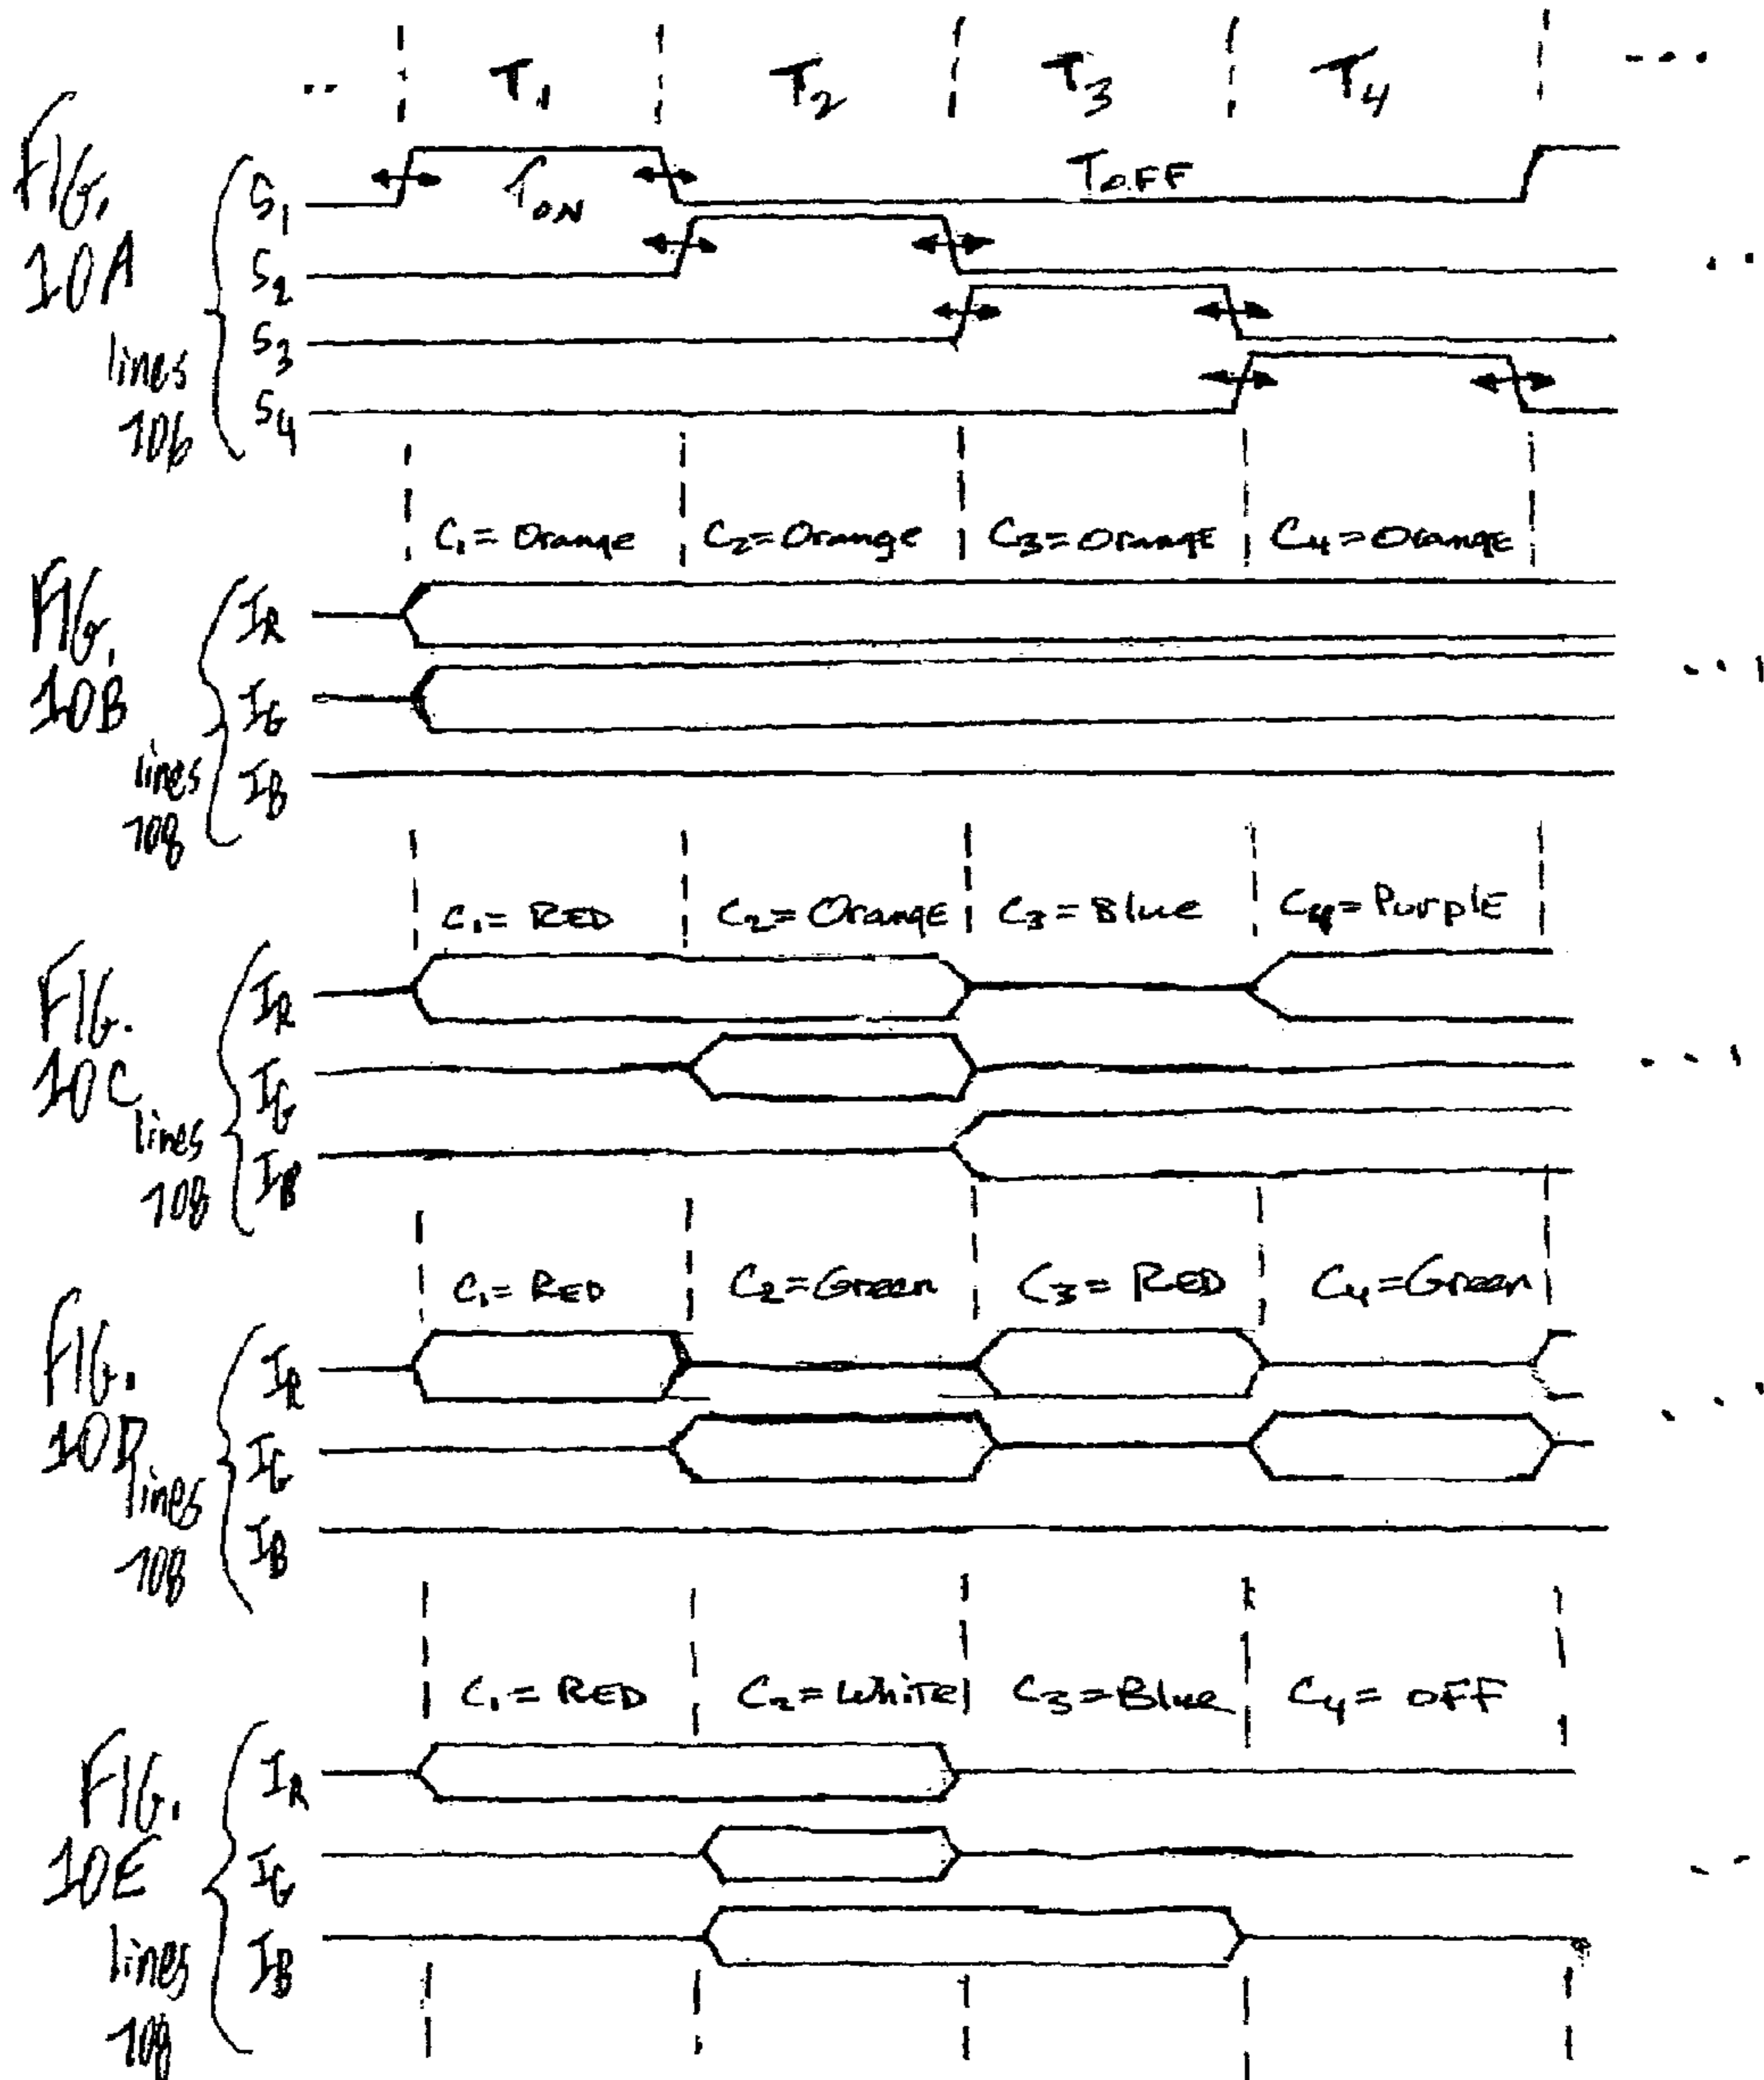 .. T1 T2 T3 T4 ...
FIG. 10A
lines 106
S1 TON TOFF
S2
S3
S4
..
C1 = Orange C2 = Orange C3 = ORANGE C4 = ORANGE
FIG. 10B
lines 108
IR
IG
IB
...
C1 = RED C2 = OrangE C3 = Blue C4 = PurplE
FIG. 10C
lines 108
IR
IG
IB
...
C1 = RED C2 = Green C3 = RED C4 = Green
FIG. 10D
lines 108
IR
IG
IB
...
C1 = RED C2 = WhiTE C3 = Blue C4 = OFF
FIG. 10E
lines 108
IR
IG
IB
..